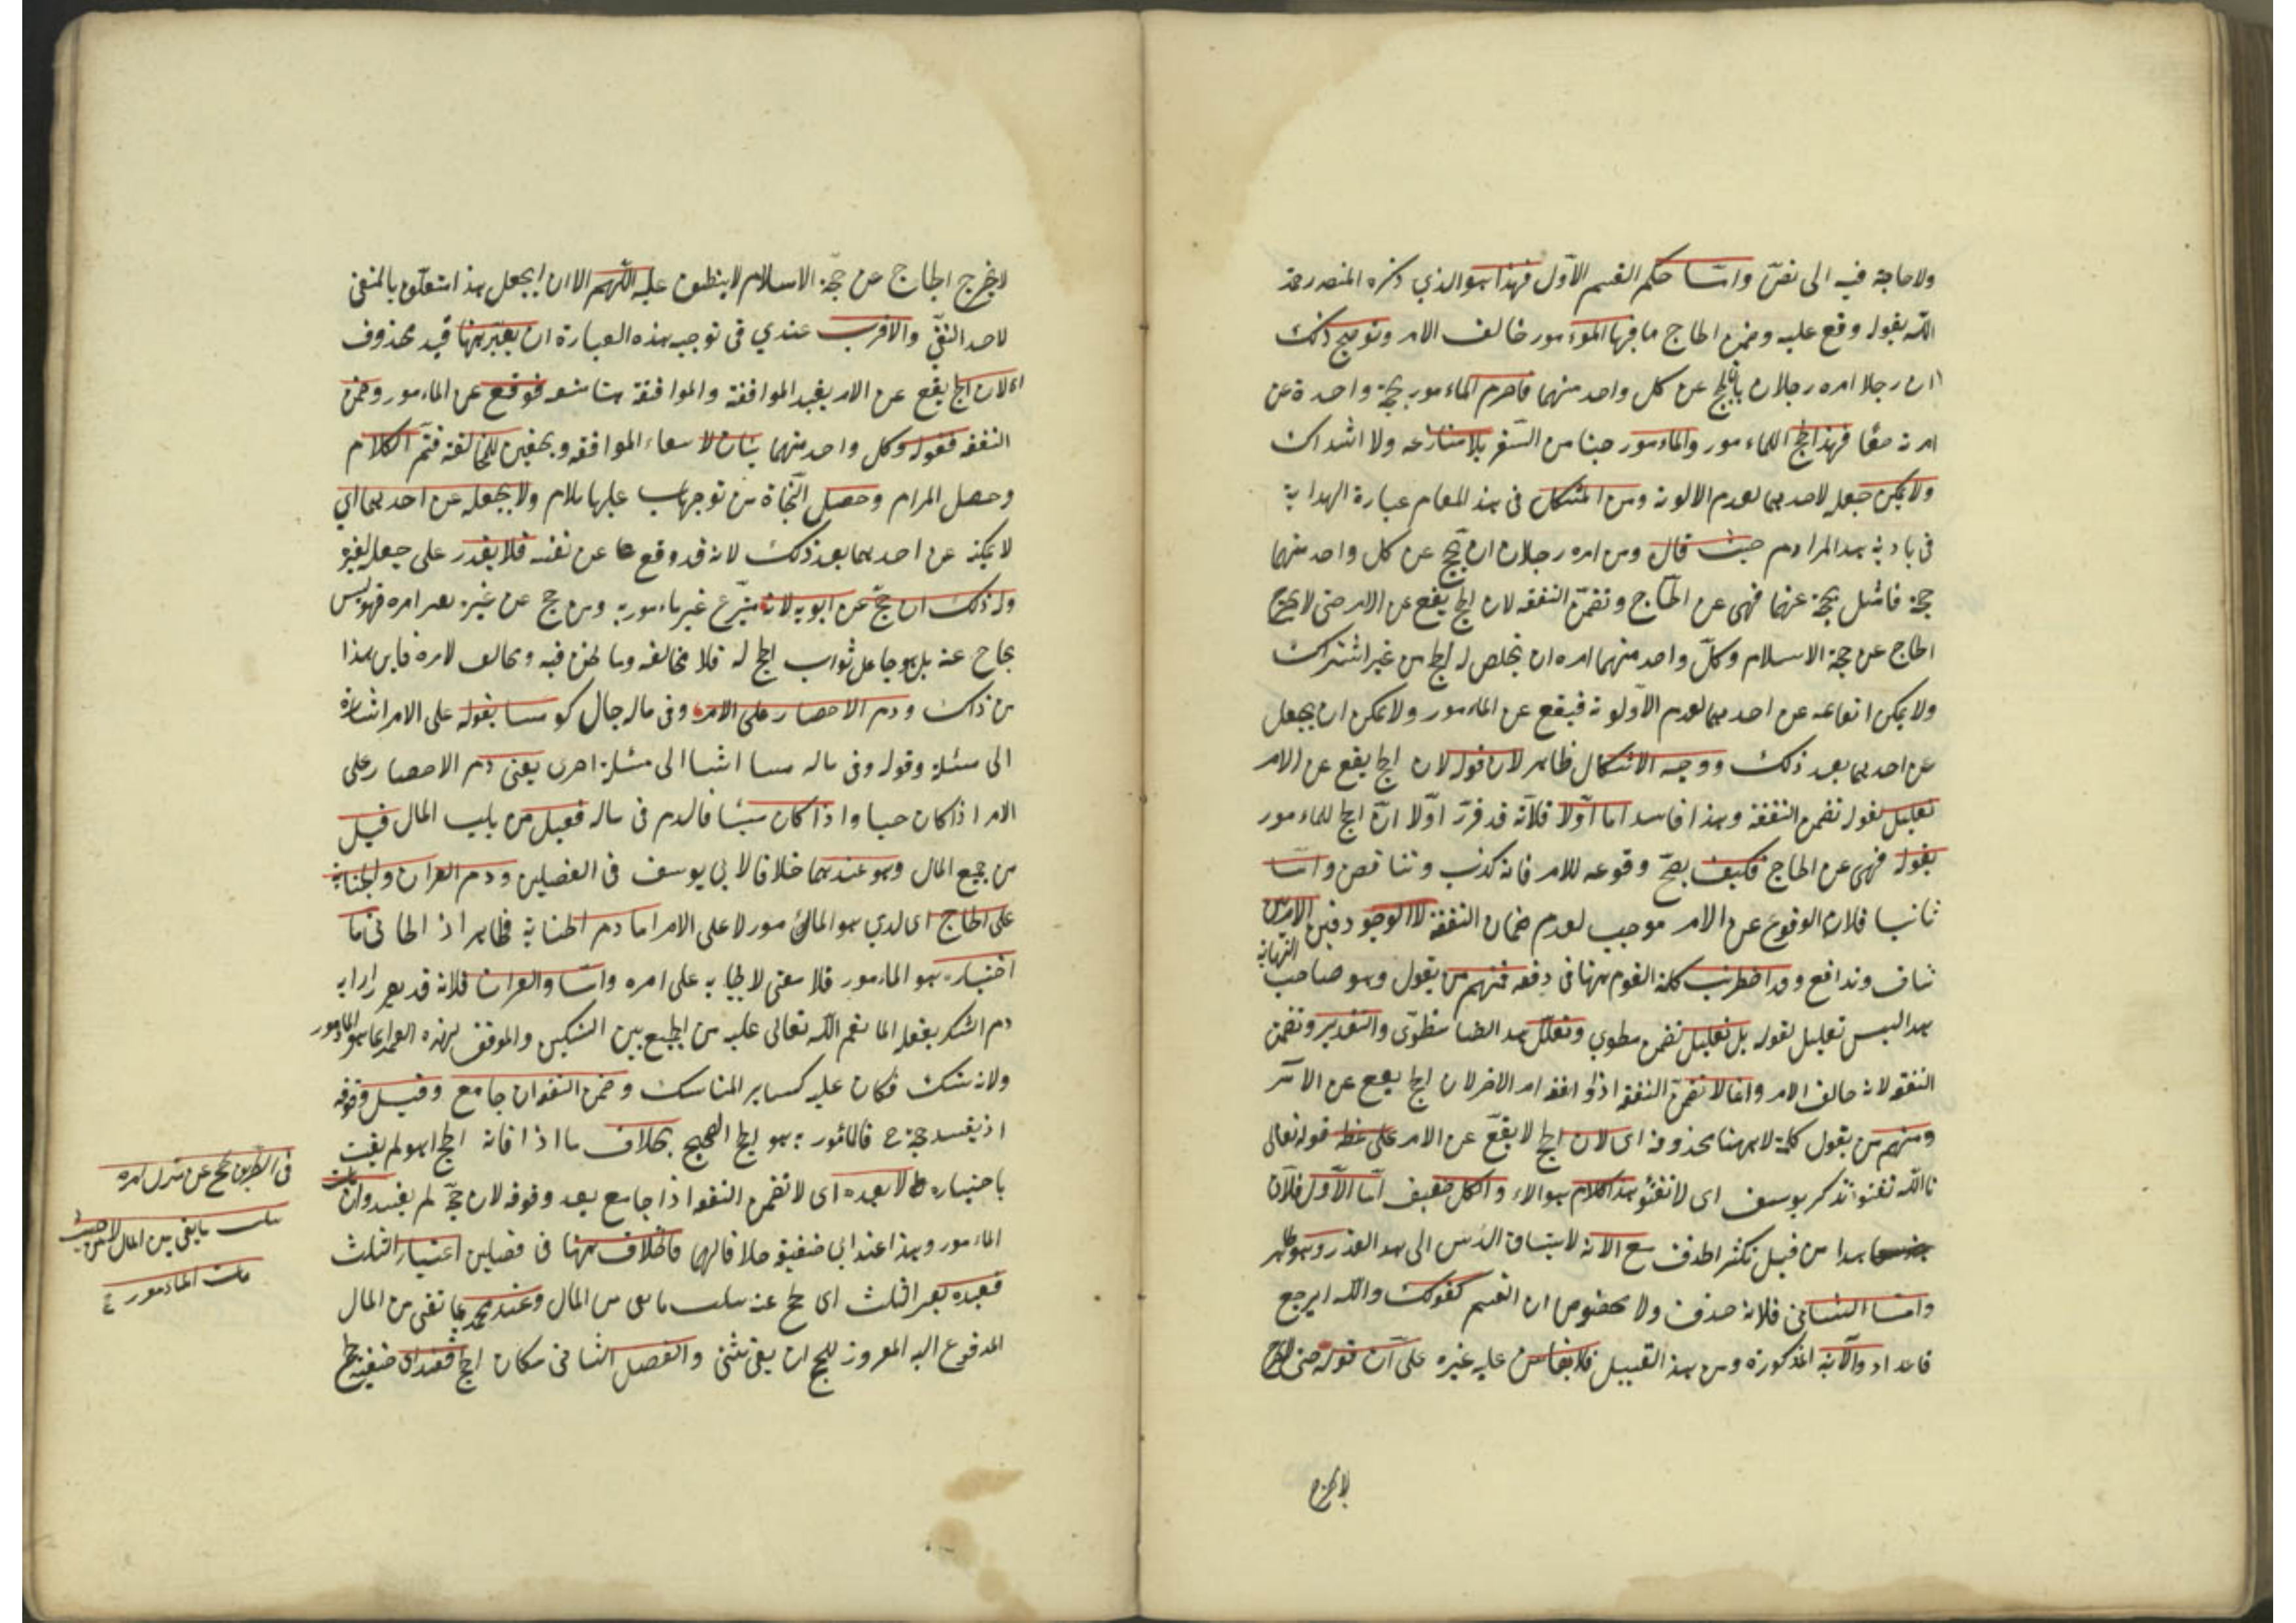 ولا حاجة فيه الى نص واما حكم القسم الاول فهذا هو الذي ذكره المصنف رحمه
الله بقوله وقع عليه وضمن الحاج ما فيها المومور خالف الامر وتوضيح ذلك
ان رجلا امره رجلان بان يحج عن كل واحد منهما فاحرم الماءمور بحجة واحدة عن
امرته معًا فهذا الحج للماءمور والماءمور من السفر بلا منازعة ولا اشتراك
ولا يمكن جعله لاحدهما لعدم الالوية ومن المشكل في هذا المقام عبارة الهداية
في بادية هذا المرام حيث قال ومن امره رجلان ان يحج عن كل واحد منهما
حجة فاهل بحجة عنهما فهى عن الحاج ويضمن النفقة لان الحج يقع عن الامر حتى لا يخرج
الحاج عن حجة الاسلام وكل واحد منهما امره ان يخلص له الحج من غير اشتراك
ولا يمكن ايقاعه عن احدهما لعدم الاولوية فيقع عن الماءمور ولا يمكن ان يجعل
عن احدهما بعد ذلك ووجه الاشكال ظاهر لان قوله لان الحج يقع عن الامر
تعليل لقوله تضمن النفقة وهذا فاسد اما اولا فلانه قد قرر اولا ان الحج للماءمور
بقوله فهى عن الحاج فكيف يصح وقوعه للامر فانه كذب وتناقض واما
ثانيا فلان الوقوع عن الامر موجب لعدم ضمان النفقة لا لوجوده فبين الامرين
تناف وتدافع وقد اضطربت كلمة القوم ههنا في دفعه فمنهم من يقول وهو صاحب النهاية
هذا ليس تعليل لقوله بل تعليل تضمن مطوي وتعلل هذا ايضا مطوى والتقدير وتضمن
النفقة لانه خالف الامر وانما لا تضمن النفقة اذا وافقه امر الاخر لان الحج يقع عن الامر
ومنهم من يقول كلمة لا ههنا محذوفة اى لان الحج لا يقع عن الامر على نمط قوله تعالى
تا الله تفتؤا تذكر يوسف اى لا تفتؤ هذا كلام هولاء والكل ضعيف اما الاول فلان
هذا من قبيل تكثر الحذف مع الانه لا ينساق الذهن الى هذا القدر وهو ظاهر
واما الثاني فلانه حذف ولا مخصوص ان القسم كقولك والله ارجع
قاعدا والاية المذكورة ومن هذا القبيل فلا يقاس عليه غيره على ان قوله حتى لا يخرج
لا يخرج
لا يخرج الحاج عن حجة الاسلام لا ينطبق عليه اللهم الا ان يجعل هذا متعلق بالمنفى
لاحد النفى والاقرب عندي في توجيه هذه العبارة ان يعتبر ههنا قيد محذوف
اى لان الحج يقع عن الامر بقيد الموافقة والموافقة فوقع عن الماءمور وضمن
النفقة فقوله وكل واحد منهما بيان لا الموافقة للمخالفة فتم الكلام
وحصل المرام وحصل النجاة من توجهات عليها ملام ولا يجعله عن احدهما اي
لا يمكنه عن احدهما بعد ذلك لانه قد وقع عن نفسه فلا يقدر على جعله لغيره
وله ذلك ان حج عن ابويه لانه متبرع غير ماءمور به ومن حج عن غيره بغير امره فهو ليس
بحاج عنه بل هو جاعل ثواب الحج له فلا مخالفة وما نحن فيه مخالف لامره فاين هذا
من ذاك ودم الاحصار على الامر وفي ماله حال كونه ميتا بقوله على الامر اشارة
الى مسئلة وقوله وفى ماله ميتا اشارة الى مسئلة اخرى يعنى دم الاحصار على
الامر اذا كان حيا واذا كان ميتا فالدم في ماله فقيل من ثلث المال قيل
من جميع المال وهو عندهما خلافا لابي يوسف في الفصلين ودم القران والجناية
على الحاج اى الذي هو الماءمور لا على الامر اما دم الجناية فظاهر اذ الجاني ما
اختياره هو الماءمور فلا معنى لايجابه على امره واما القران فلانه
دم الشكر بفعله لما نعم الله تعالى عليه من الجمع بين النسكين والموفق لهذه النعمة انما هو الماءمور
ولانه نسك فكان عليه كساير المناسك وضمن النفقة ان جامع وقبيل وقوفه
اذ يفسد حجة ح فالماءمور به هو الحج الصحيح بخلاف ما اذا فاته الحج لم يفت
باختياره لا بعده اى لا تضمن النفقة اذا جامع بعد وقوفه لان حجه لم يفسد وان مات
الماءمور وهذا عند ابي حنيفة خلافا لهما فالخلاف ههنا في فصلين اعتبار الثلث
فعنده يعتبر الثلث اى حج عنه بثلث ما بقى من المال وعند محمد بما بقى من المال
المدفوع اليه المفروز للحج ان بقى شئ والفصل الثاني مكان الحج فعند ابى حنيفة يحج
في الطريق يحج عن منزل امره
بثلث ما بقى من المال لا من حيث
مات الماءمور ح